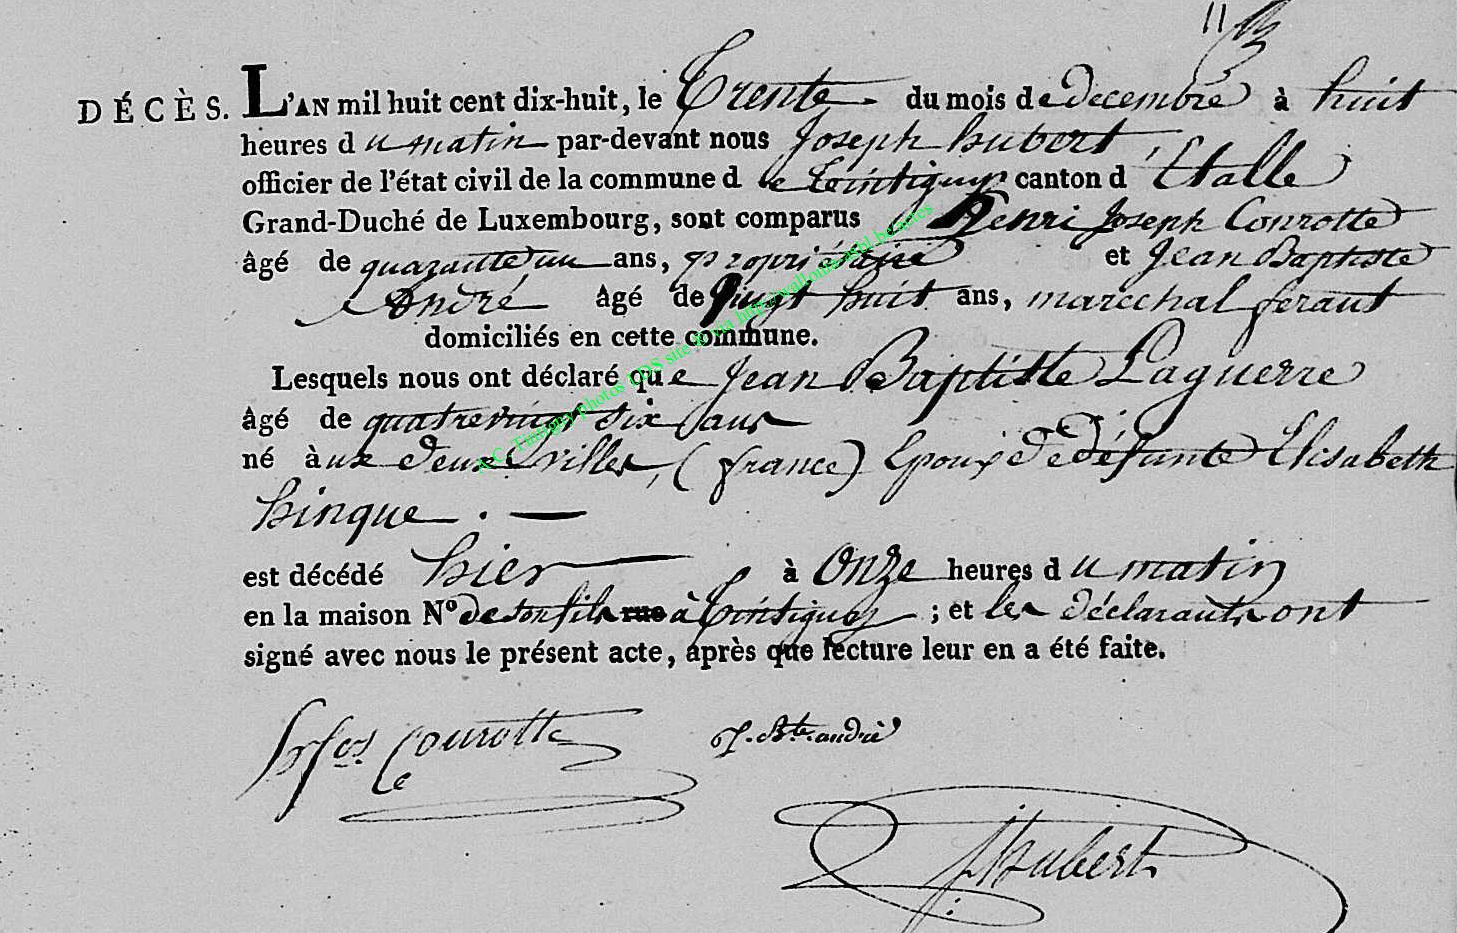 11
DÉCÈS. L'AN mil huit cent dix-huit, le Trente du mois de decembre à huit
heures du matin par-devant nous Joseph hubert,
officier de l'état civil de la commune de tintigny canton d'Etalle
Grand-Duché de Luxembourg, sont comparus henri Joseph Conrotte
âgé de quarante un ans, propriétaire et Jean Baptiste
André âgé de vingt huit ans, marechal feraut
domiciliés en cette commune.
Lesquels nous ont déclaré que Jean Baptiste Laguerre
âgé de quatrevingt six ans
né à ux deux villes, (france) Epoux de défunte Elisabeth
hinque. —
est décédé hier à Onze heures du matin
en la maison N° de son fils rue à tintigny ; et les déclarants ont
signé avec nous le présent acte, après que lecture leur en a été faite.
Conrotte J. Bte. andré
Jhubert
A.C. Tintigny photos LDS site & via http://wallonia-asbl.be/actes